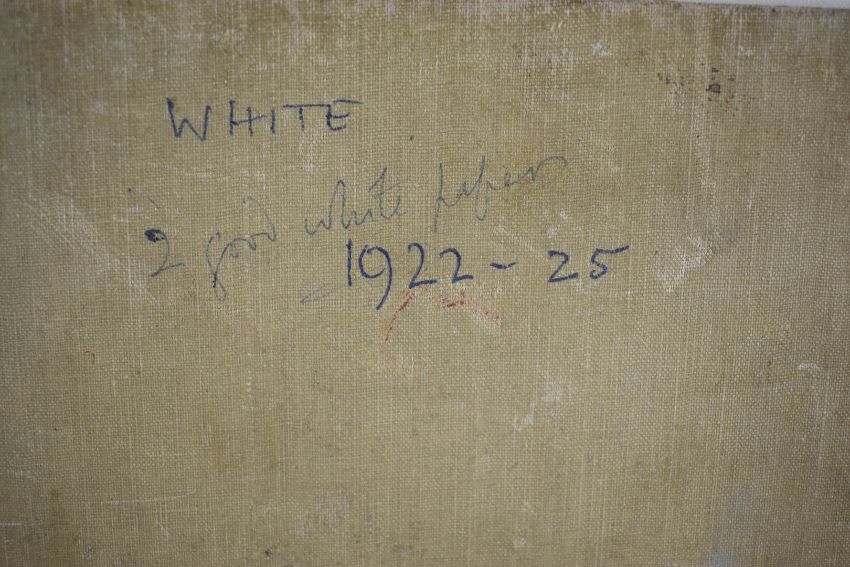 WHITE
2 good white papers
1922-25